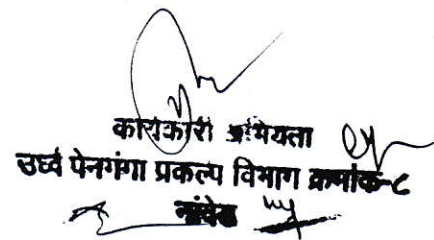 कार्यकारी अभियंता
उर्ध्व पेनगंगा प्रकल्प विभाग क्रमांक-८
नांदेड